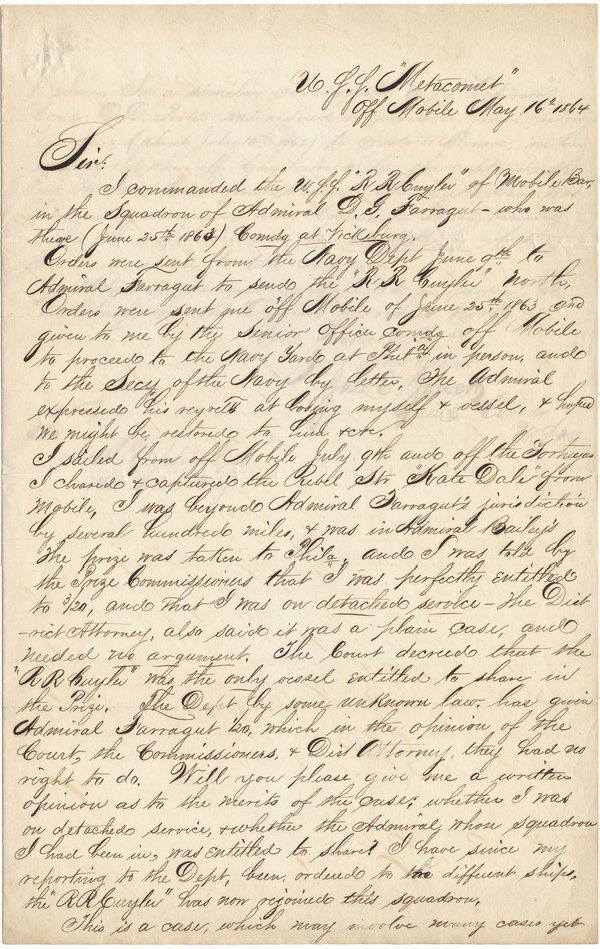 U.S.S. "Metacomet"
Off Mobile May 16th 1864
Sir:
I commanded the U.S.S. "R R Cuyler" of Mobile Bar,
in the Squadron of Admiral D. G. Farragut - who was
there (June 25th 1863) Comdg at Vicksburg.
Orders were sent from the Navy Dept June 9th to
Admiral Farragut to send the "R R Cuyler" North,
Orders were sent me off Mobile of June 25th 1863 and
given to me by the Senior Officer comdg off Mobile
to proceed to the Navy Yard at in person, and
to the Secy of the Navy by letter, The Admiral
expressed his regrets at losing myself & vessel, & hoped
we might be restored to him &c &c.
I sailed from off Mobile July 9th and off the "Tortugas
I chased & captured the Rebel Str "Kate Dale" from
Mobile, I was beyond Admiral Farragut's jurisdiction
by several hundred miles, & was in Admiral Bailey's
The prize was taken to Phila, and I was told by
the Prize Commissioners that "I" was perfectly entitled
to 3/20, and that I was on detached service - The Dist
-rict Attorney, also said it was a plain case, and
needed no argument. The Court decreed that the
"R R Cuyler" was the only vessel entitled to share in
the Prize. The Dept by some unknown law. has given
Admiral Farragut 1/20, which in the opinion of the
Court, the Commissioners. & Dist Attorney, they had no
right to do. Will you please give me a written
opinion as to the merits of the case; whether I was
on detached service, & whether the Admiral, whose squadron
I had been in, was entitled to share? I have since my
reporting to the Dept, been ordered to two different ships,
the "R R Cuyler" has now rejoined this squadron.
This is a case, which may involve many cases yet